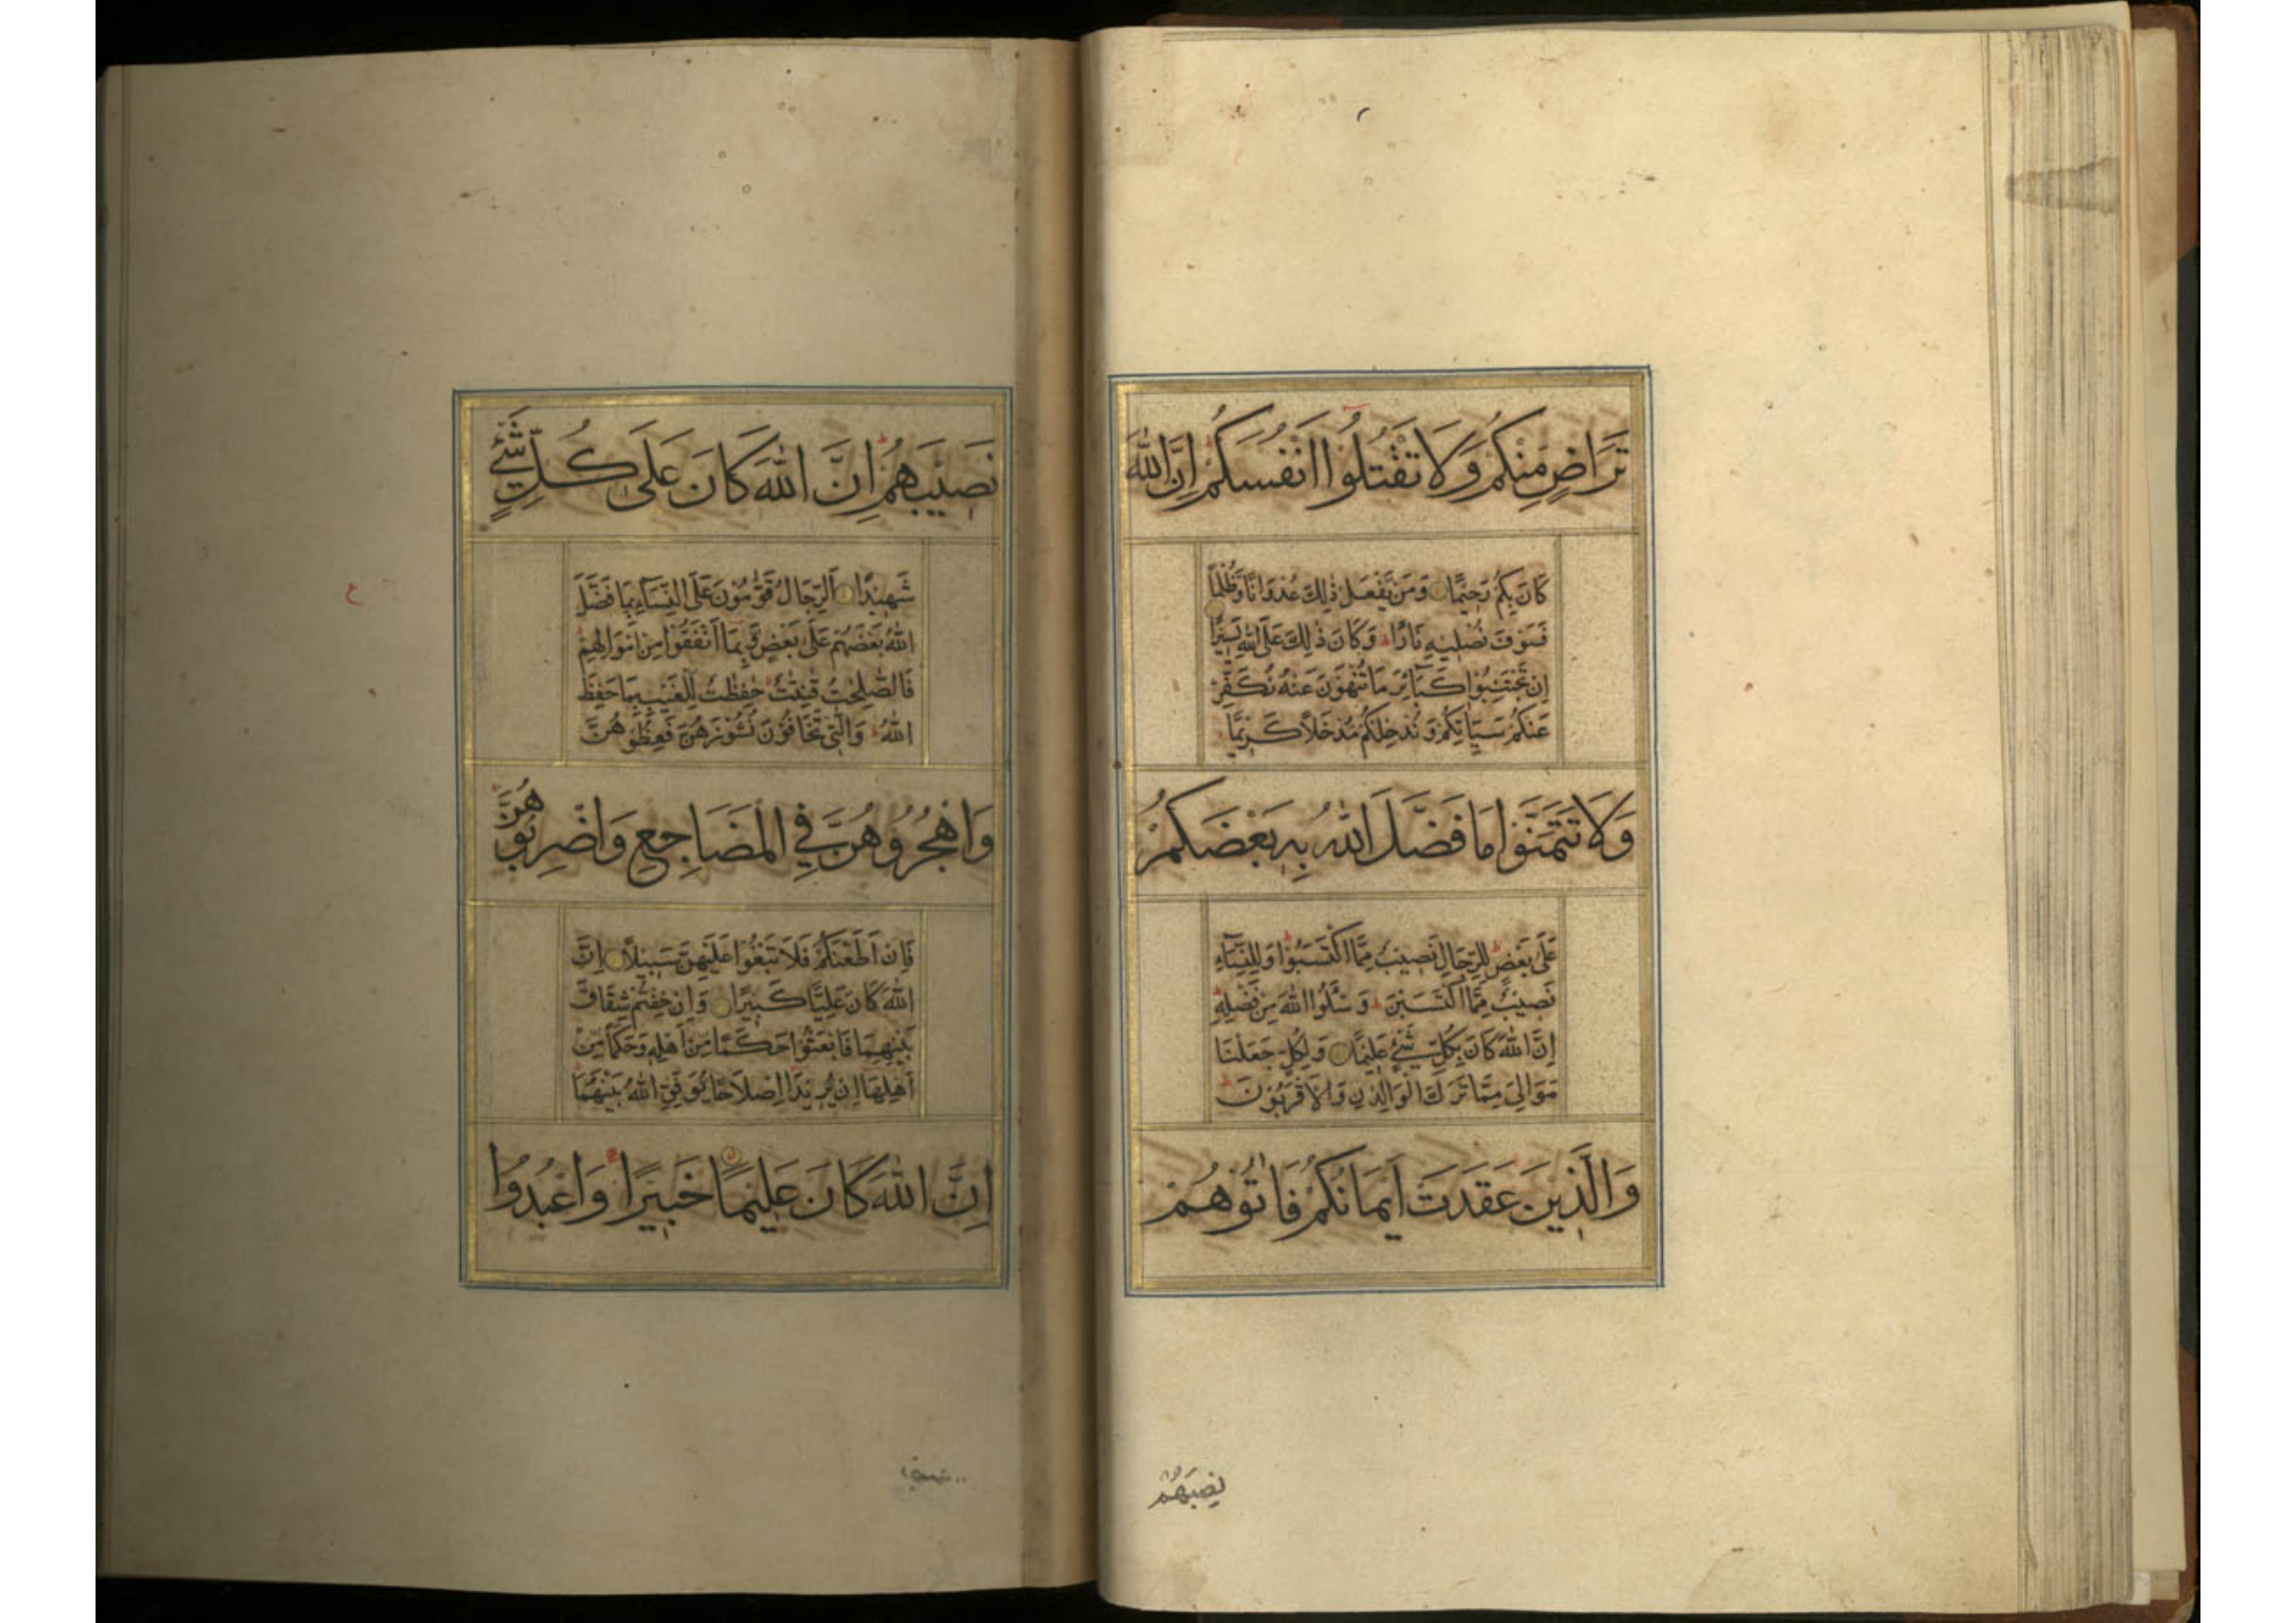 تَرَاضٍ مِنْكُمْ وَلَا تَقْتُلُوا اَنْفُسَكُمْ اِنَّ اللّٰهَ
كَانَ بِكُمْ رَحِيْمًا وَمَنْ يَفْعَلْ ذٰلِكَ عُدْوَانًا وَظُلْمًا
فَسَوْفَ نُصْلِيْهِ نَارًا وَكَانَ ذٰلِكَ عَلَى اللّٰهِ يَسِيْرًا
اِنْ تَجْتَنِبُوْا كَبَآئِرَ مَا تُنْهَوْنَ عَنْهُ نُكَفِّرْ
عَنْكُمْ سَيِّاٰتِكُمْ وَنُدْخِلْكُمْ مُدْخَلًا كَرِيْمًا
وَلَا تَتَمَنَّوْا مَا فَضَّلَ اللّٰهُ بِهٖ بَعْضَكُمْ
عَلٰى بَعْضٍ لِلرِّجَالِ نَصِيْبٌ مِمَّا اكْتَسَبُوْا وَلِلنِّسَآءِ
نَصِيْبٌ مِمَّا اكْتَسَبْنَ وَسْئَلُوا اللّٰهَ مِنْ فَضْلِهٖ
اِنَّ اللّٰهَ كَانَ بِكُلِّ شَيْءٍ عَلِيْمًا وَلِكُلٍّ جَعَلْنَا
مَوَالِيَ مِمَّا تَرَكَ الْوَالِدٰنِ وَالْاَقْرَبُوْنَ
وَالَّذِيْنَ عَقَدَتْ اَيْمَانُكُمْ فَاٰتُوْهُمْ
نصيبهم
نَصِيْبَهُمْ اِنَّ اللّٰهَ كَانَ عَلٰى كُلِّ شَيْءٍ
شَهِيْدًا اَلرِّجَالُ قَوّٰمُوْنَ عَلَى النِّسَآءِ بِمَا فَضَّلَ
اللّٰهُ بَعْضَهُمْ عَلٰى بَعْضٍ وَبِمَا اَنْفَقُوْا مِنْ اَمْوَالِهِمْ
فَالصّٰلِحٰتُ قٰنِتٰتٌ حٰفِظٰتٌ لِلْغَيْبِ بِمَا حَفِظَ
اللّٰهُ وَالّٰتِيْ تَخَافُوْنَ نُشُوْزَهُنَّ فَعِظُوْهُنَّ
وَاهْجُرُوْهُنَّ فِي الْمَضَاجِعِ وَاضْرِبُوْهُنَّ
فَاِنْ اَطَعْنَكُمْ فَلَا تَبْغُوْا عَلَيْهِنَّ سَبِيْلًا اِنَّ
اللّٰهَ كَانَ عَلِيًّا كَبِيْرًا وَاِنْ خِفْتُمْ شِقَاقَ
بَيْنِهِمَا فَابْعَثُوْا حَكَمًا مِنْ اَهْلِهٖ وَحَكَمًا مِنْ
اَهْلِهَا اِنْ يُرِيْدَا اِصْلَاحًا يُوَفِّقِ اللّٰهُ بَيْنَهُمَا
اِنَّ اللّٰهَ كَانَ عَلِيْمًا خَبِيْرًا وَاعْبُدُوا
ع